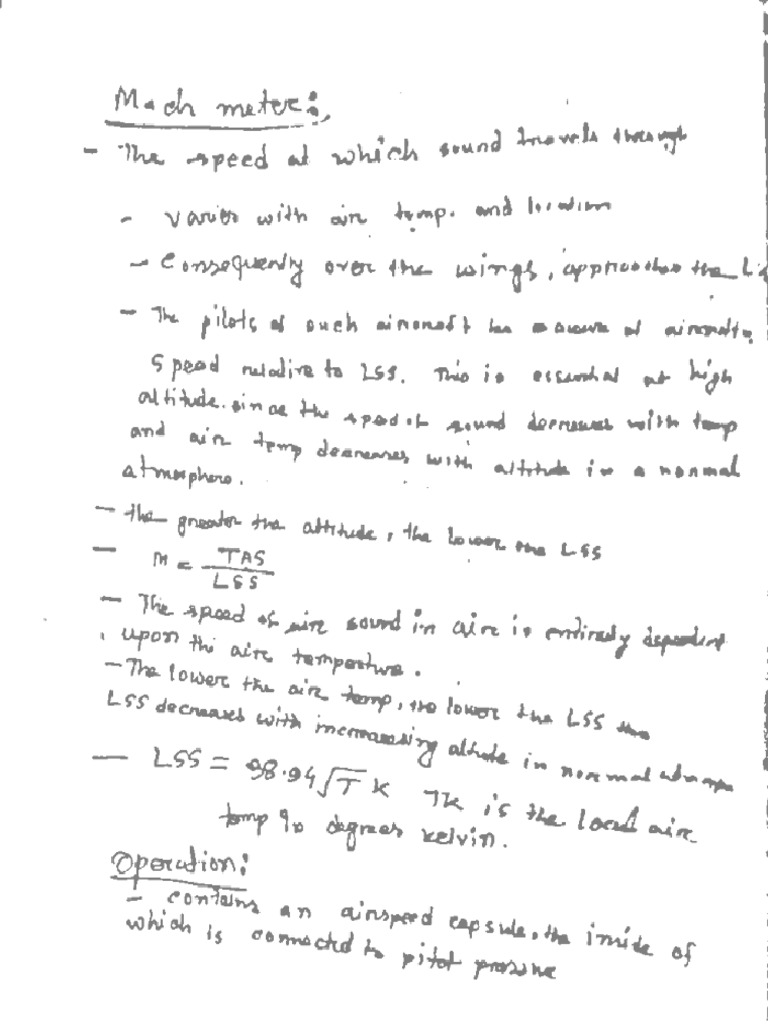 Mach meter:
- The speed at which sound travels through
- varies with air temp. and location
- Consequently over the wings, approaches the
- The pilots of such aircraft be aware of aircrafts
Speed relative to LSS. This is essential at high
altitude. since the speed of sound decreases with temp
and air temp decreases with altitude in a normal
atmosphere.
- the greater the altitude, the lower the LSS
- M = TAS / LSS
- The speed of air sound in air is entirely dependent
upon the air temperture.
- The lower the air temp, the lower the LSS the
LSS decreases with increasing altitude in normal
- LSS = 38.94 √T K Tk is the local air
temp in degrees kelvin.
Operation:
- contains an airspeed capsule, the inside of
which is connected to pitot pressure